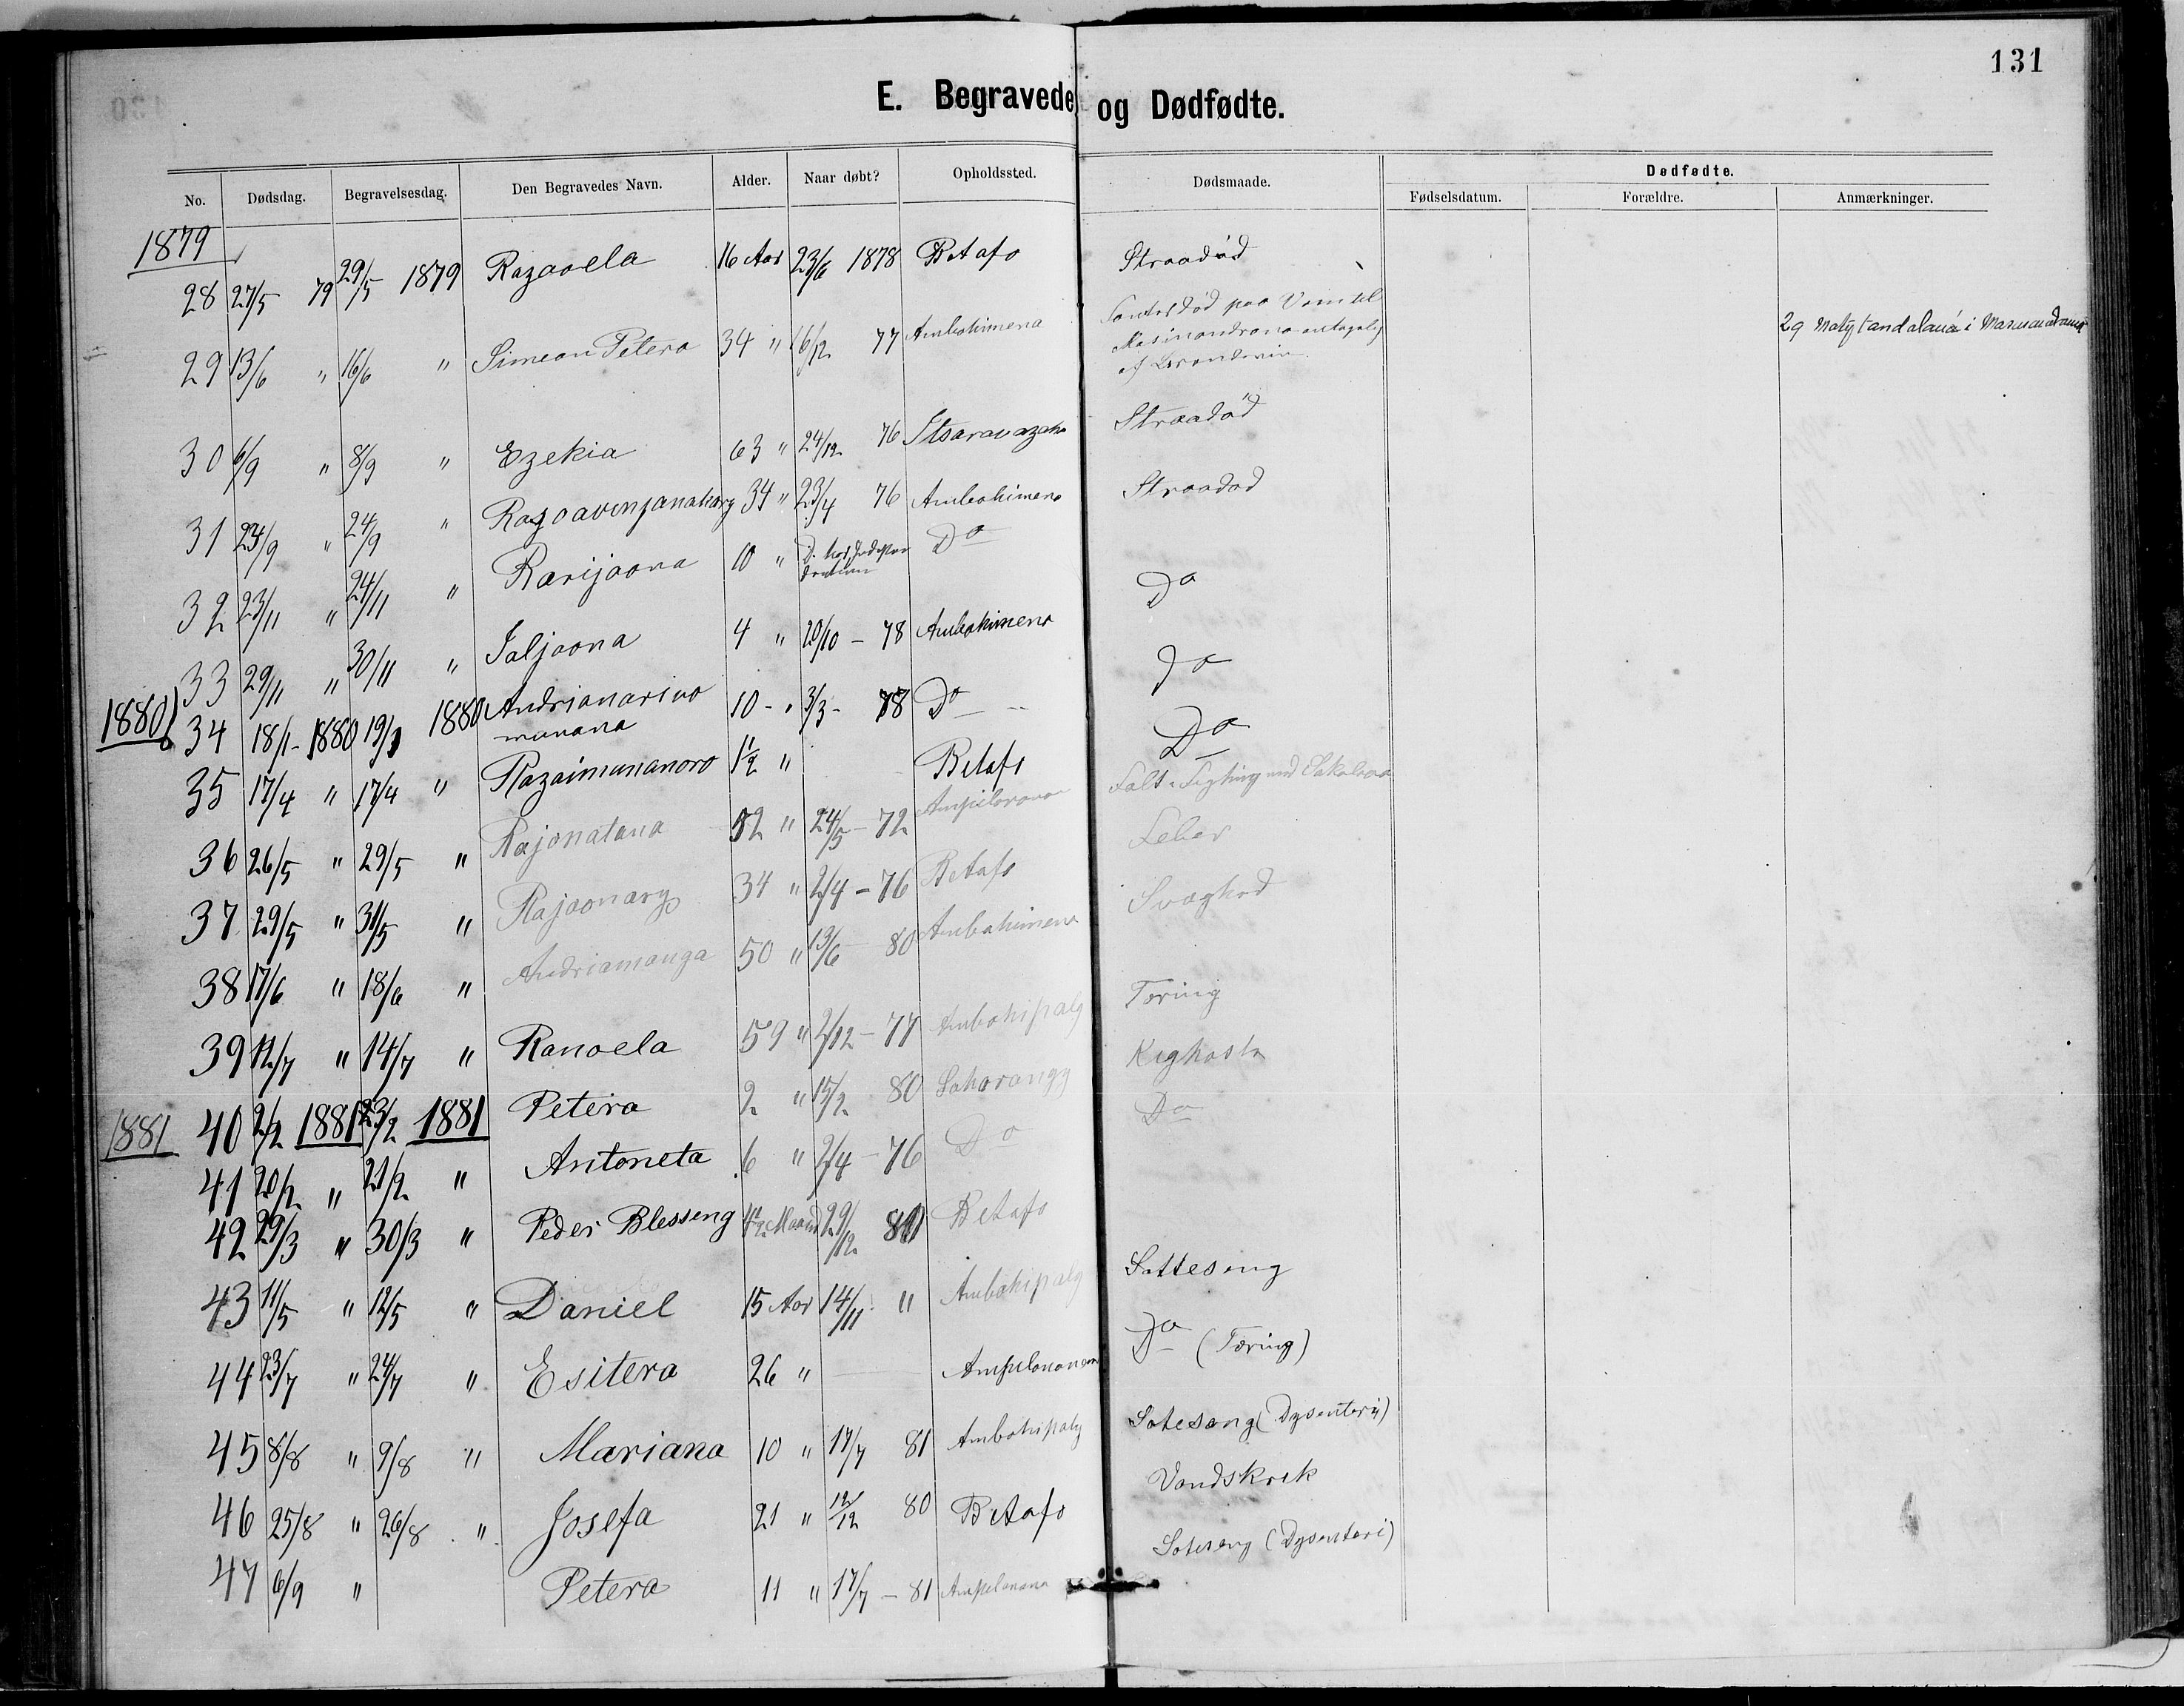 131
E. Begravede og Dødfødte.
No. Dødsdag. Begravelsesdag. Den Begravedes Navn. Alder. Naar døbt? Opholdssted. Dødsmaade. Dødfødte.
Fødselsdatum. Forældre. Anmærkninger.
1879
28 27/5 79 29/5 1879 Razaoela 16 Aar 23/6 1878 Betafo Straadød
29 13/6 " 16/6 " Simeon Petera 34 " 16/12 77 Ambohimena død paa Veien til
Masinandrana
af
29 i
30 6/9 " 8/9 " Ezekia 63 " 24/12 76 Straadød
31 23/9 " 24/9 " 34 " 23/4 76 Ambohimena Straadød
32 23/11 " 24/11 " Rarijaona 10 " Do Do
33 29/11 " 30/11 " Jaljaona 4 " 20/10 - 78 Ambohimena Do
1880
34 18/1 - 1880 19/1 1880 Andrianarivo 10 - " 3/3 - 78 Do Do
manana
35 17/4 " 17/4 " Razaimananoro 1½ " Betafo
Faldt i Fegtning med Sakalava
36 26/5 " 29/5 " Rajonatana 52 " 24/5 - 72 Feber
37 29/5 " 31/5 " Rajaonary 34 " 2/4 - 76 Betafo Svaghed
38 17/6 " 18/6 " Andriamanga 50 " 13/6 80 Ambohimena Tæring
39 12/7 " 14/7 " Ranoela 59 " 2/12 - 77 Ambohipaly Kighoste
1881 40 2/2 1881 23/2 1881 Petera 2 " 15/2 80 Do
41 20/2 " 21/2 " Antoneta 6 " 2/4 - 76 Do
42 29/3 " 30/3 " Peder Blesseng 4½ Maaned 29/12 Betafo
43 11/5 " 12/5 " Daniel 15 Aar 14/11 " Ambohipaly Sotteseng
44 23/7 " 24/7 " Esitera 26 " — Ampilanonana Do (Tæring)
45 8/8 " 9/8 " Mariana 10 " 17/7 81 Ambohipaly Soteseng (Dysenteri)
46 25/8 " 26/8 " Josefa 21 " 12/12 80 Betafo Vandskræk
47 6/9 " Petera 11 " 17/7 - 81 Soteseng (Dysenteri)